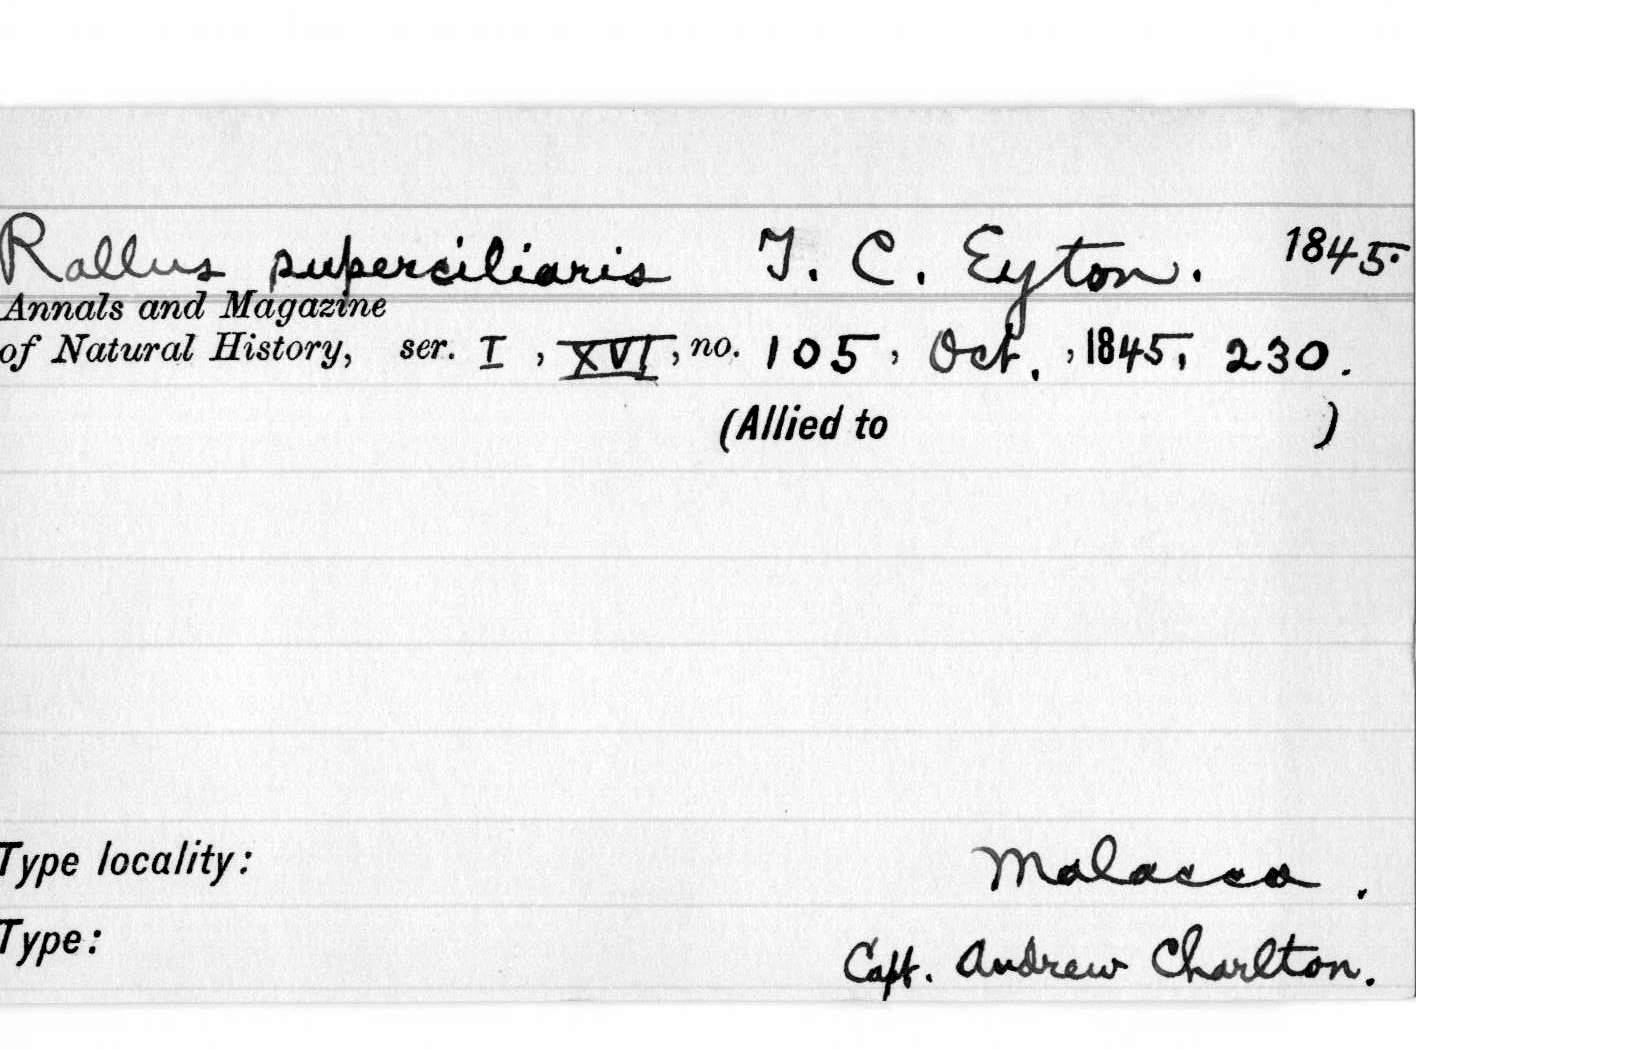 Rallus superciliaris T. C. Eyton. 1845.
Annals and Magazine
of Natural History, ser. I, XVI, no. 105, Oct., 1845, 230.
(Allied to )
Type locality: Malacca.
Type: Capt. Andrew Charlton.